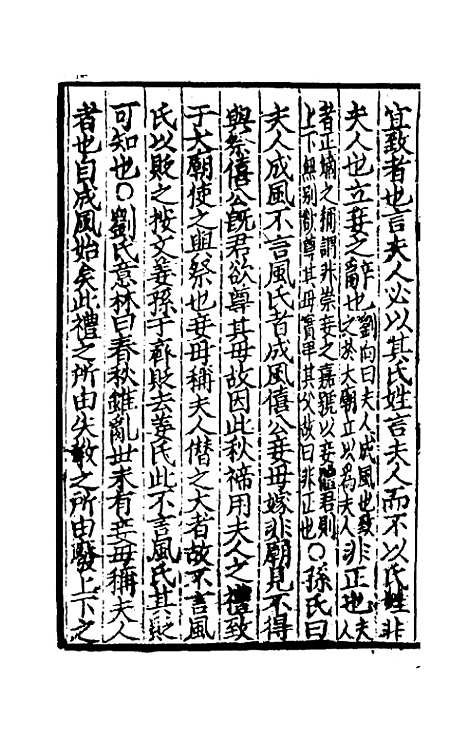 宜致者也言夫人必以其氏姓言夫人而不以氏姓非
夫人也立妾之辭也劉向曰夫人成風也致之於大廟立以為夫人非正也夫人
者正嫡之稱謂非崇妾之嘉號以妾體君則上下無別雖尊其母實卑其父故曰非正也○孫氏曰
夫人成風不言風氏者成風僖公妾母嫁非廟見不得
與祭僖公旣君欲尊其母故因此秋禘用夫人之禮致
于大廟使之與祭也妾母稱夫人僭之大者故不言風
氏以貶之按文姜孫于齊貶去姜氏此不言風氏其貶
可知也○劉氏意林曰春秋雖亂世未有妾母稱夫人
者也自成風始矣此禮之所由失教之所由廢上下之